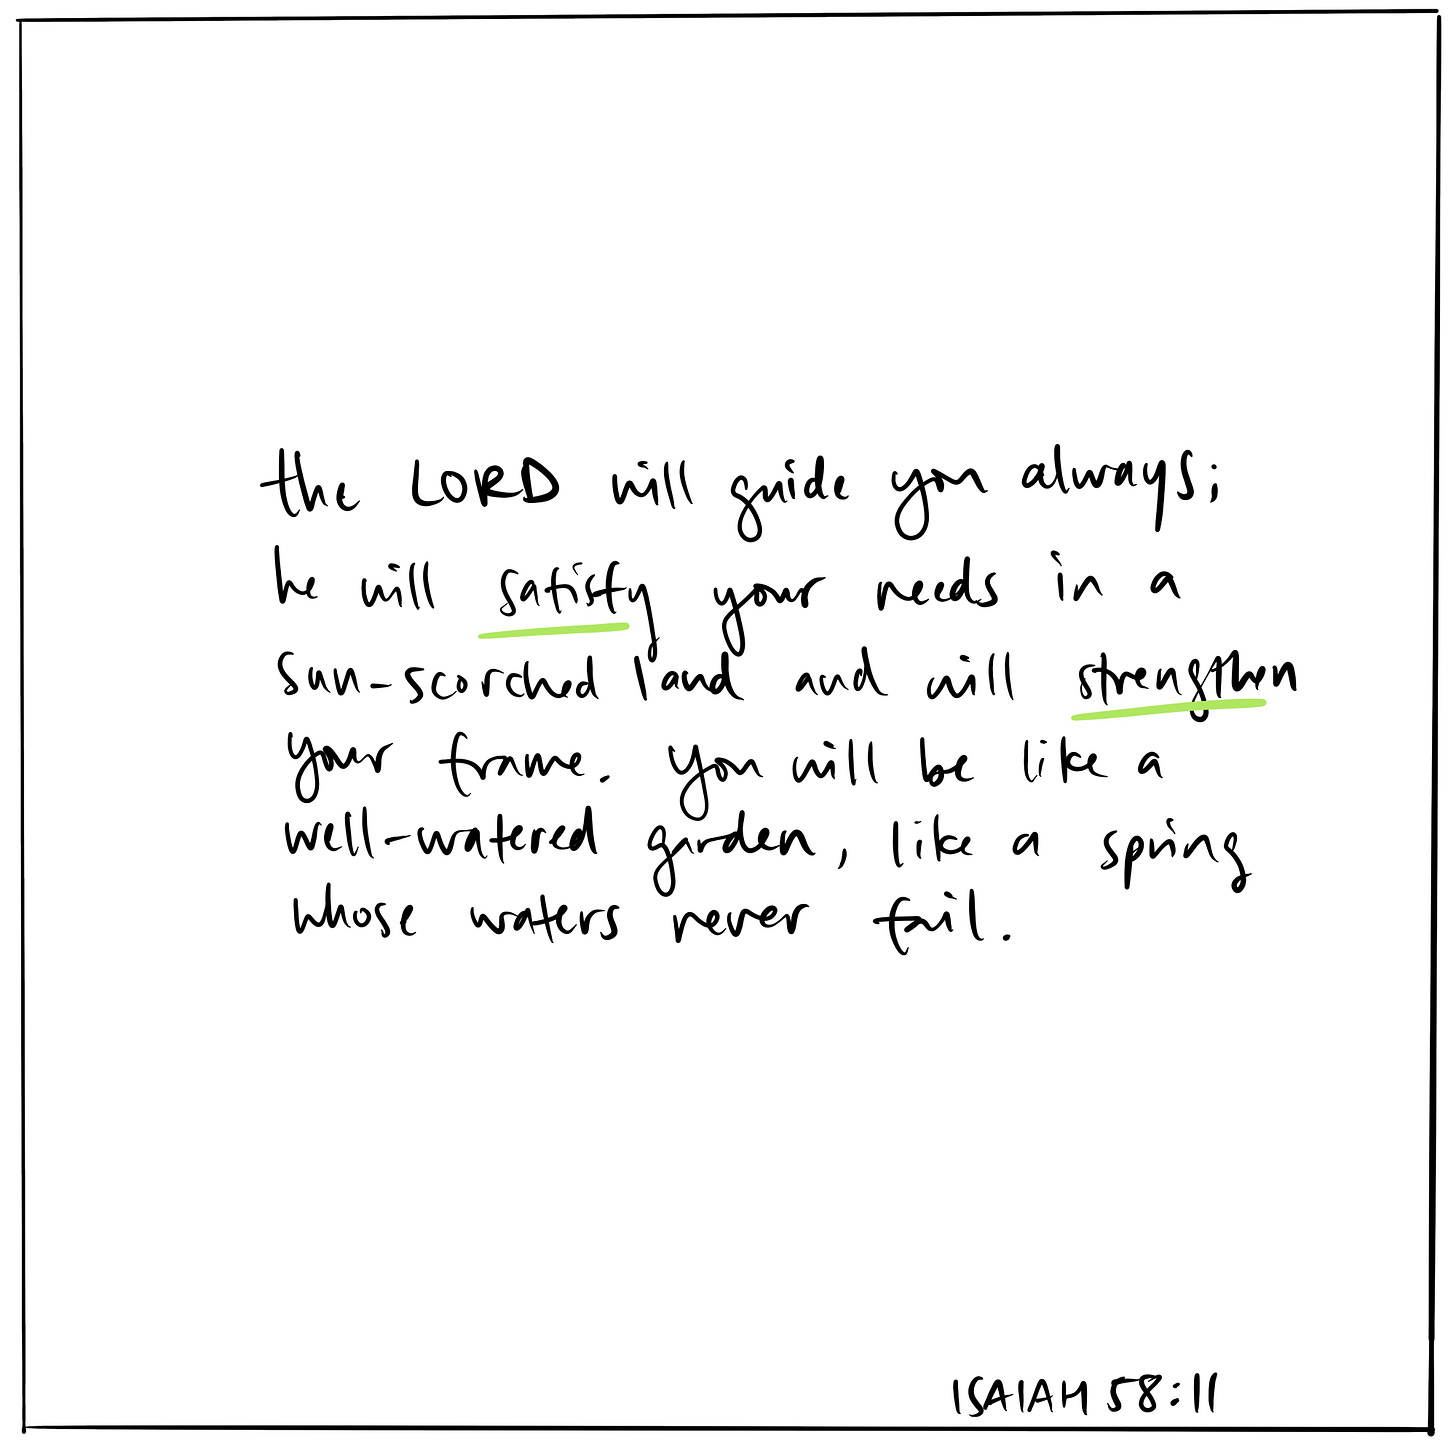 the LORD will guide you always;
he will satisfy your needs in a
sun-scorched land and will strengthen
your frame. You will be like a
well-watered garden, like a spring
whose waters never fail.
ISAIAH 58:11